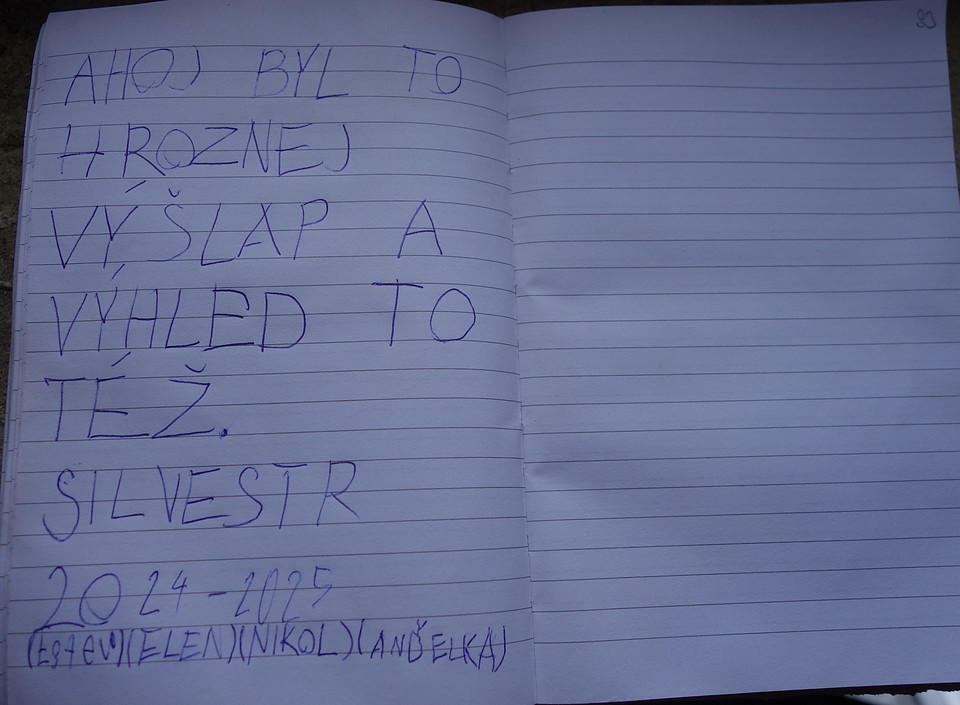 AHOJ BYL TO
HROZNEJ
VÝŠLAP A
VÝHLED TO
TÉŽ.
SILVESTR
2024-2025
(ELEN)(NIKOL)(ANDĚLKA)